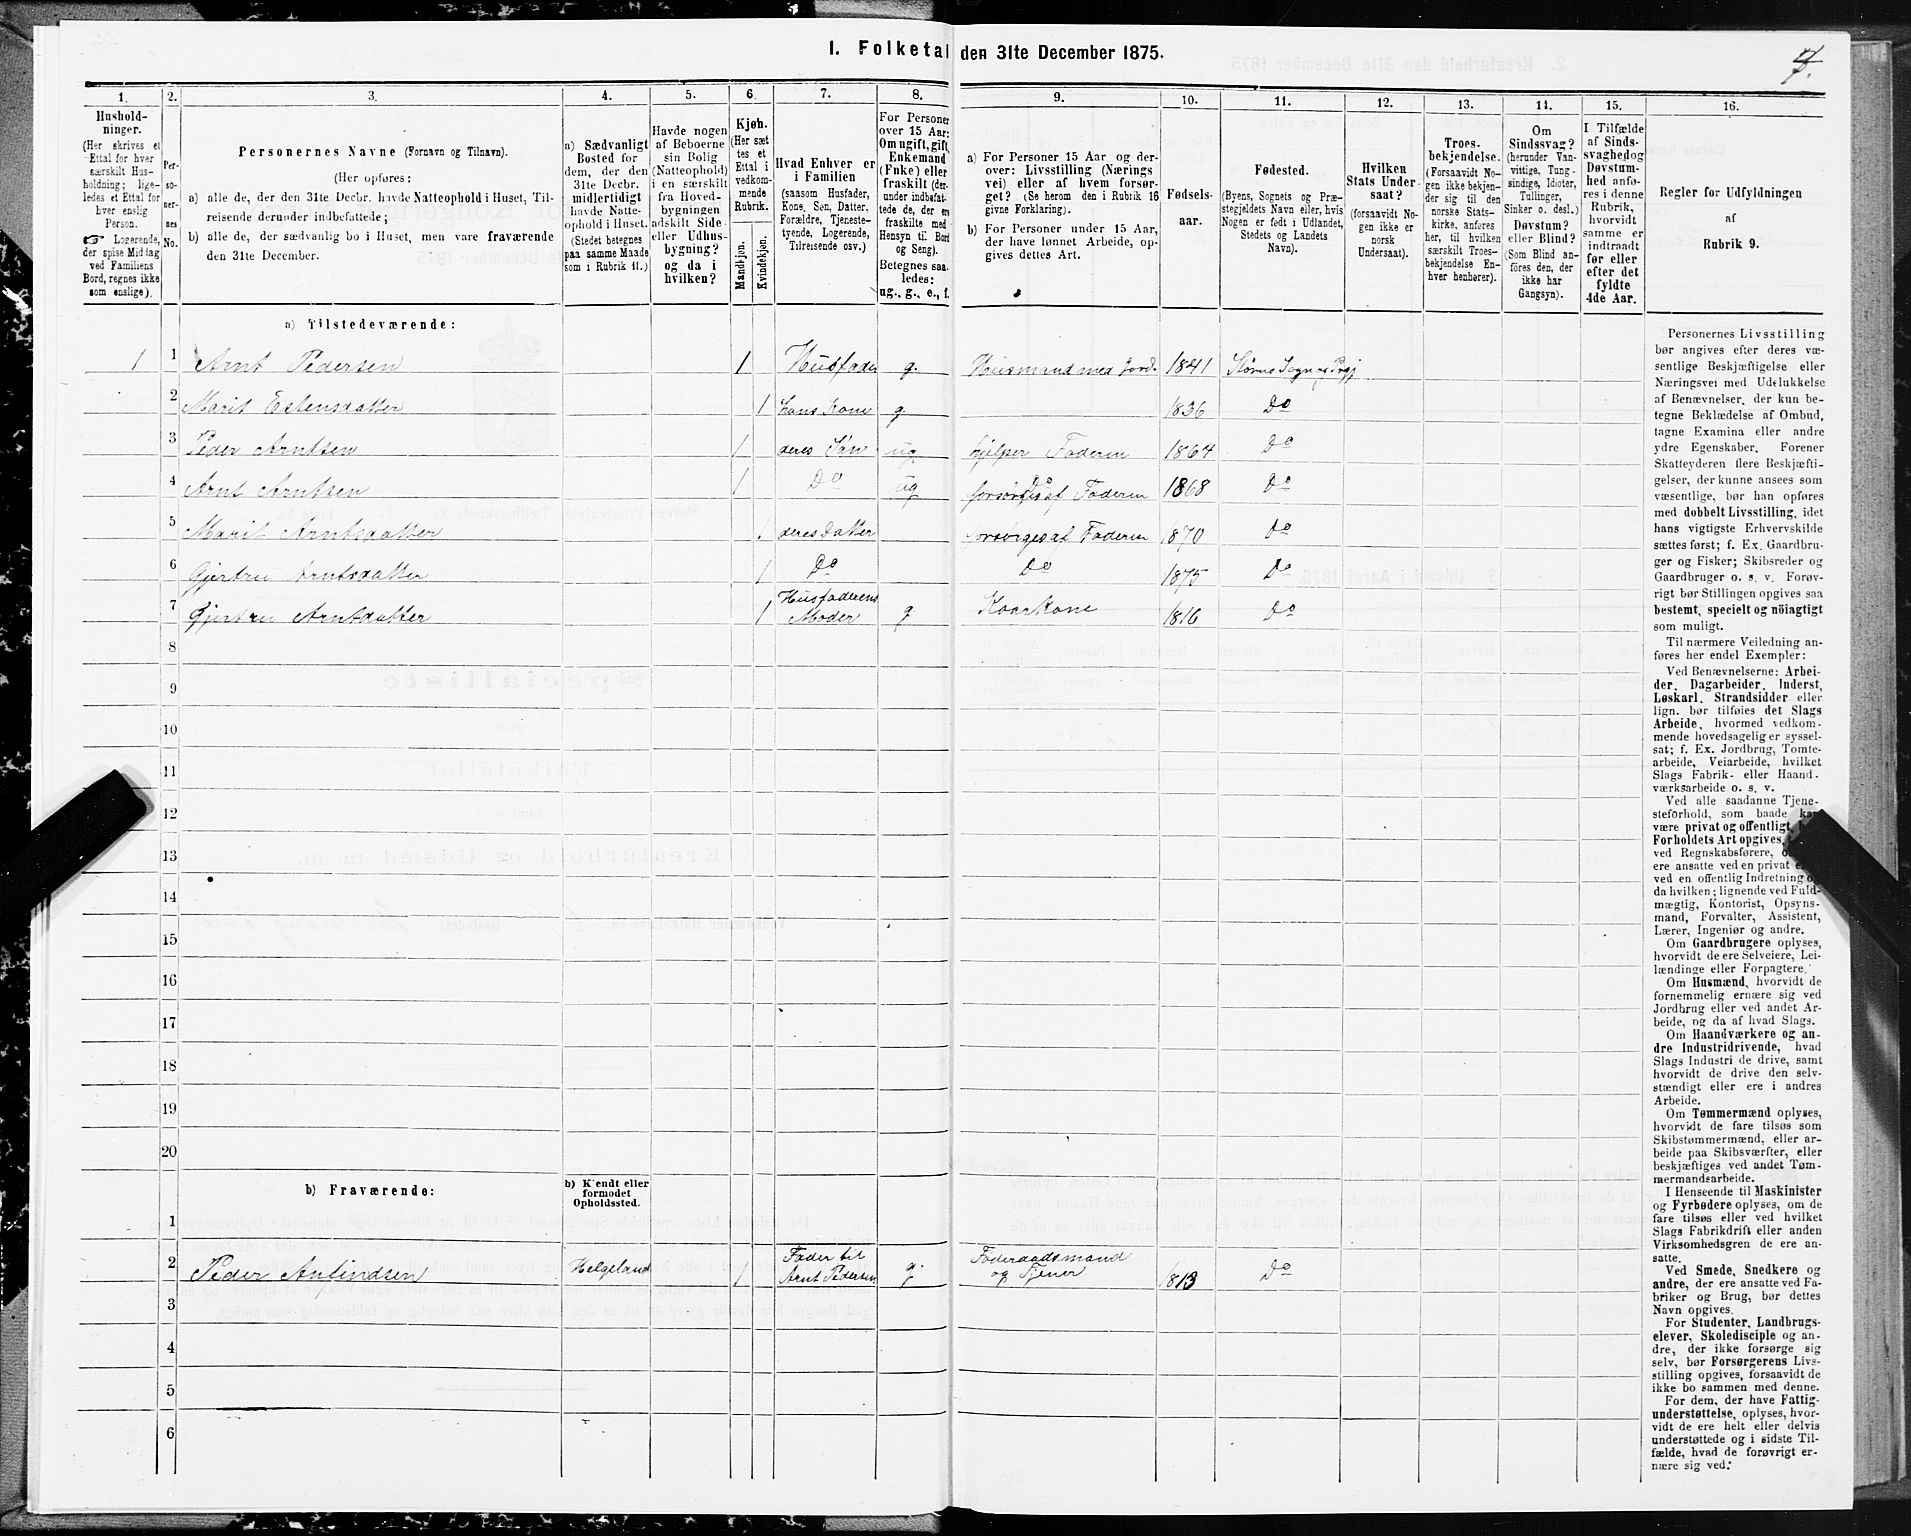 1. Folketal den 31te December 1875.
7.
1. 2. 3. 4. 5. 6. 7. 8. 9. 10. 11. 12. 13. 14. 15. 16.
Hushold-
ninger.
(Her skrives et
Ettal for hver
særskilt Hus-
holdning; lige-
ledes et Ettal for
hver enslig
Person.
☞ Logerende,
der spise Middag
ved Familiens
Bord, regnes ikke
som enslige).
Per-
so-
ner-
nes
No.
Personernes Navne (Fornavn og Tilnavn).
(Her opføres:
a) alle de, der den 31te Decbr. havde Natteophold i Huset, Til-
reisende derunder indbefattede;
b) alle de, der sædvanlig bo i Huset, men vare fraværende
den 31te December.
a) Sædvanligt
Bosted for
dem, der den
31te Decbr.
midlertidigt
havde Natte-
ophold i Huset.
(Stedet betegnes
paa samme Maade
som i Rubrik 11.)
Havde nogen
af Beboerne
sin Bolig
(Natteophold)
i en særskilt
fra Hoved-
bygningen
adskilt Side-
eller Udhus-
bygning?
og da i
hvilken?
Kjøn.
(Her sæt-
tes et
Ettal i
vedkom-
mende
Rubrik.
Mandkjøn.
Kvindekjøn.
Hvad Enhver er
i Familien
(saasom Husfader,
Kone, Søn, Datter,
Forældre, Tjeneste-
tyende, Logerende,
Tilreisende osv.)
For Personer
over 15 Aar:
Om ugift, gift,
Enkemand
(Enke) eller
fraskilt (der-
under indbefat-
tede de, der ere
fraskilte med
Hensyn til Bord
og Seng).
Betegnes saa-
ledes:
ug., g., e., f.
a) For Personer 15 Aar og der-
over: Livsstilling (Nærings-
vei) eller af hvem forsør-
get? (Se herom den i Rubrik 16
givne Forklaring).
b) For Personer under 15 Aar,
der have lønnet Arbeide, op-
gives dettes Art.
Fødsels-
aar.
Fødested.
(Byens, Sognets og Præ-
stegjeldets Navn eller, hvis
Nogen er født i Udlandet,
Stedets og Landets
Navn).
Hvilken
Stats Under-
saat?
(forsaavidt No-
gen ikke er
norsk
Undersaat).
Troes-
bekjendelse.
(Forsaavidt No-
gen ikke bekjen-
der sig til den
norske Stats-
kirke, anføres
her, til hvilken
særskilt Troes-
bekjendelse En-
hver henhører).
Om
Sindssvag?
(herunder Van-
vittige, Tung-
sindige, Idioter,
Tullinger,
Sinker o. desl.)
Døvstum?
eller Blind?
(Som Blind an-
føres den, der
ikke har
Gangsyn).
I Tilfælde
af Sinds-
svaghed og
Døvstum-
hed anfø-
res i denne
Rubrik,
hvorvidt
samme er
indtraadt
før eller
efter det
fyldte
4de Aar.
Regler for Udfyldningen
af
Rubrik 9.
a) Tilstedeværende:
1 1 Arnt Pedersen 1 Husfader g. Husmand med Jord. 1841 Størens Sogn og Prgj
2 Marit Estensdatter 1 hans Kone g. 1836 Do
3 Peder Arntsen 1 deres Søn ug. hjelper Faderen 1864 Do
4 Arnt Arntsen 1 Do ug Do forsørges af Faderen 1868 Do
5 Marit Arntsdatter 1 deres Datter forsørges af Faderen 1870 Do
6 Gjertru Arntsdatter 1 Do Do 1875 Do
7 Gjertru Arntsdatter 1 Husfaderens Moder g Kaarkone 1816 Do
8
9
10
11
12
13
14
15
16
17
18
19
20
b) Fraværende:
b) Kjendt eller
formodet
Opholdssted.
1
2 Peder Anfindsen Helgeland 1 Fader til Arnt Pedersen g. Føderaadsmand og Tjener 1813 Do
3
4
5
6
Personernes Livsstilling
bør angives efter deres væ-
sentlige Beskjæftigelse eller
Næringsvei med Udelukkelse
af Benævnelser, der kun be-
tegne Beklædelse af Ombud,
tagne Examina eller andre
ydre Egenskaber. Forener
Skatteyderen flere Beskjæfti-
gelser, der kunne ansees som
væsentlige, bør han opføres
med dobbelt Livsstilling, idet
hans vigtigste Erhvervskilde
sættes først; f. Ex. Gaardbru-
ger og Fisker; Skibsreder og
Gaardbruger o. s. v. Forøv-
rigt bør Stillingen opgives saa
bestemt, specielt og nöiagtigt
som muligt.
Til nærmere Veiledning an-
føres her endel Exempler:
Ved Benævnelserne: Arbei-
der, Dagarbeider, Inderst,
Løskarl, Strandsidder eller
lign. bør tilføies det Slags
Arbeide, hvormed vedkom-
mende hovedsagelig er syssel-
sat; f. Ex. Jordbrug, Tomte-
arbeide, Veiarbeide, hvilket
Slags Fabrik- eller Haand-
værksarbeide o. s. v.
Ved alle saadanne Tjene-
steforhold, som baade kan
være privat og offentligt,
Forholdets Art opgives,
ved Regnskabsførere,
ere ansatte ved en privat
ved en offentlig Indretning
da hvilken; lignende ved Fuld-
mægtig, Kontorist, Opsyns-
mand, Forvalter, Assistent,
Lærer, Ingeniør og andre.
Om Gaardbrugere oplyses,
hvorvidt de ere Selveiere, Lei-
lændinge eller Forpagtere.
Om Husmænd, hvorvidt de
fornemmelig ernære sig ved
Jordbrug eller ved andet Ar-
beide, og da af hvad Slags.
Om Haandværkere og an-
dre Industridrivende, hvad
Slags Industri de drive, samt
hvorvidt de drive den selv-
stændigt eller ere i andres
Arbeide.
Om Tømmermænd oplyses,
hvorvidt de fare tilsøs som
Skibstømmermænd, eller ar-
beide paa Skibsværfter, eller
beskjæftiges ved andet Tøm-
mermandsarbeide.
I Henseende til Maskinister
og Fyrbødere oplyses, om de
fare tilsøs eller ved hvilket
Slags Fabrikdrift eller anden
Virksomhedsgren de ere an-
satte.
Ved Smede, Snedkere og
andre, der ere ansatte ved Fa-
briker og Brug, bør dettes
Navn opgives.
For Studenter, Landbrugs-
elever, Skoledisciple og an-
dre, der ikke forsørge sig
selv, bør Forsørgerens Livs-
stilling opgives, forsaavidt de
ikke bo sammen med denne.
For dem, der have Fattig-
understøttelse, oplyses, hvor-
vidt de ere helt eller delvis
understøttede og i sidste Til-
fælde, hvad de forøvrigt er-
nære sig ved.